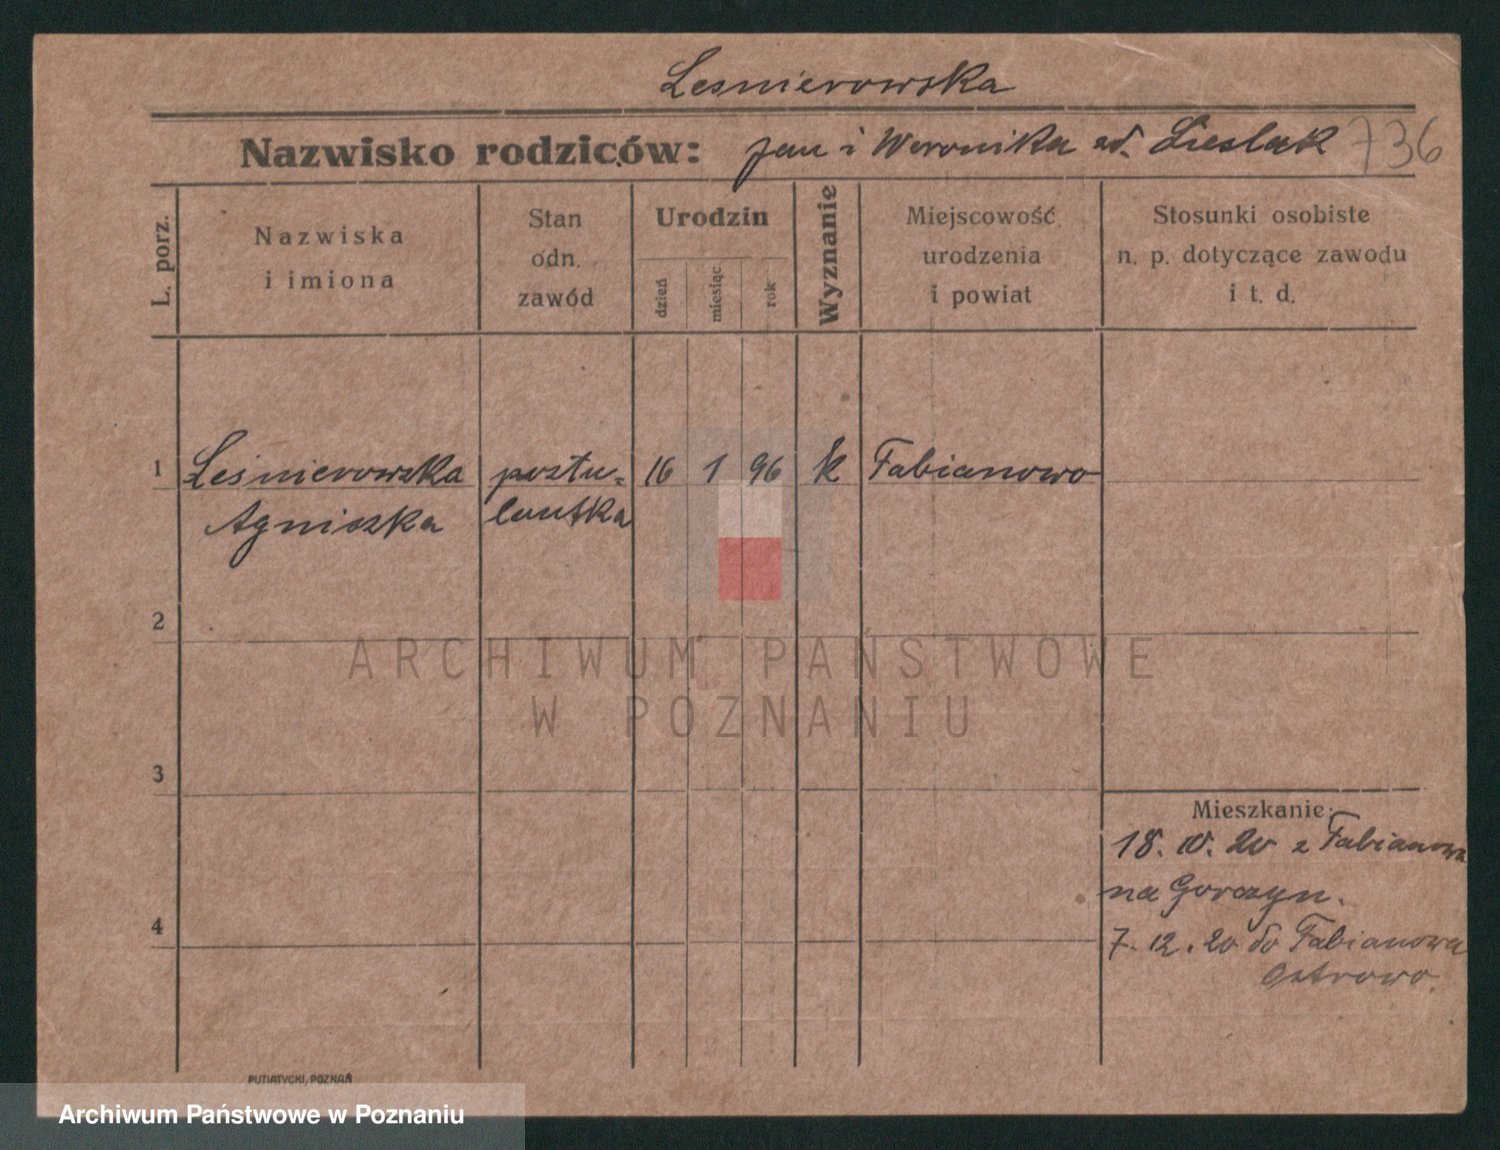 Lesnierowska
Nazwisko rodziców: Jan i Weronika zd. Cieslak 736
L. porz.
Nazwiska
i imiona
Stan
odn.
zawód
Urodzin
dzień
miesiąc
rok
Wyznanie
Miejscowość
urodzenia
i powiat
Stosunki osobiste
n. p. dotyczące zawodu
i t. d.
1 Leśnierowska postu- 16 1 96 k Fabianowo
Agniszka lantka
2
ARCHIWUM PAŃSTWOWE
W POZNANIU
3
Mieszkanie:
18. 10. 20 z Fabianowa
na Gorczyn.
4
7. 12. 20 do Fabianowa
Ostrowo.
PUTIATYCKI, POZNAŃ
Archiwum Państwowe w Poznaniu